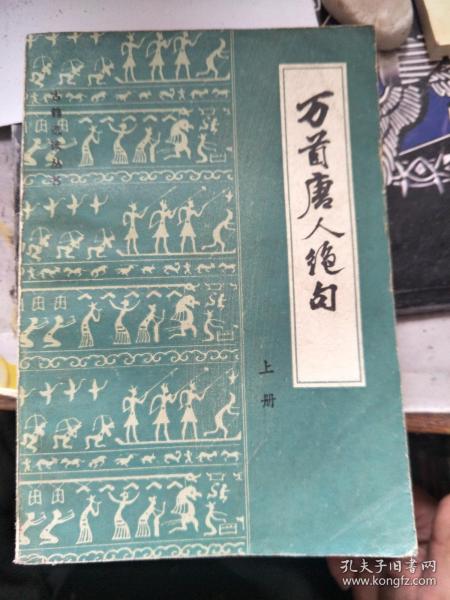 古籍选读丛书
万首唐人绝句
上册
孔夫子旧书网
www.kongfz.com